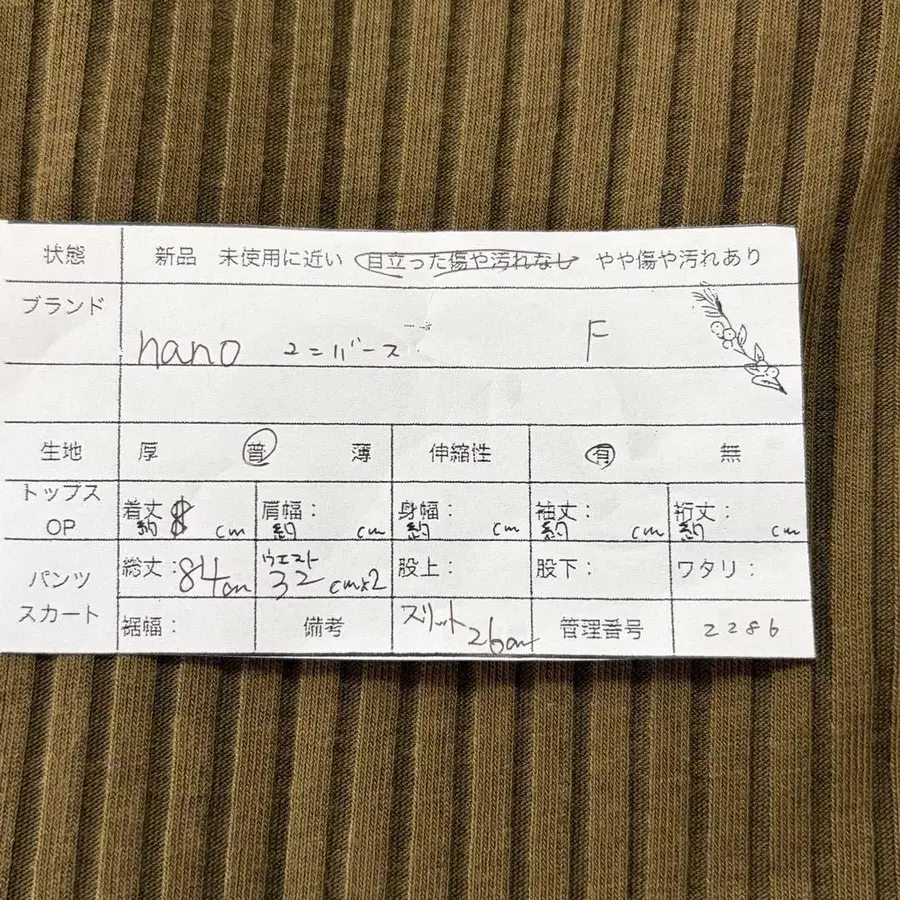 状態 新品 未使用に近い 目立った傷や汚れなし やや傷や汚れあり
ブランド
nano ユニバース F
生地 厚 普 薄 伸縮性 有 無
トップス OP 着丈 約 cm 肩幅： 約 cm 身幅： 約 cm 袖丈： 約 cm 裄丈： 約 cm
パンツ スカート 総丈：84cm ウエスト 32cm×2 股上： 股下： ワタリ：
裾幅： 備考 スリット 26cm 管理番号 2286